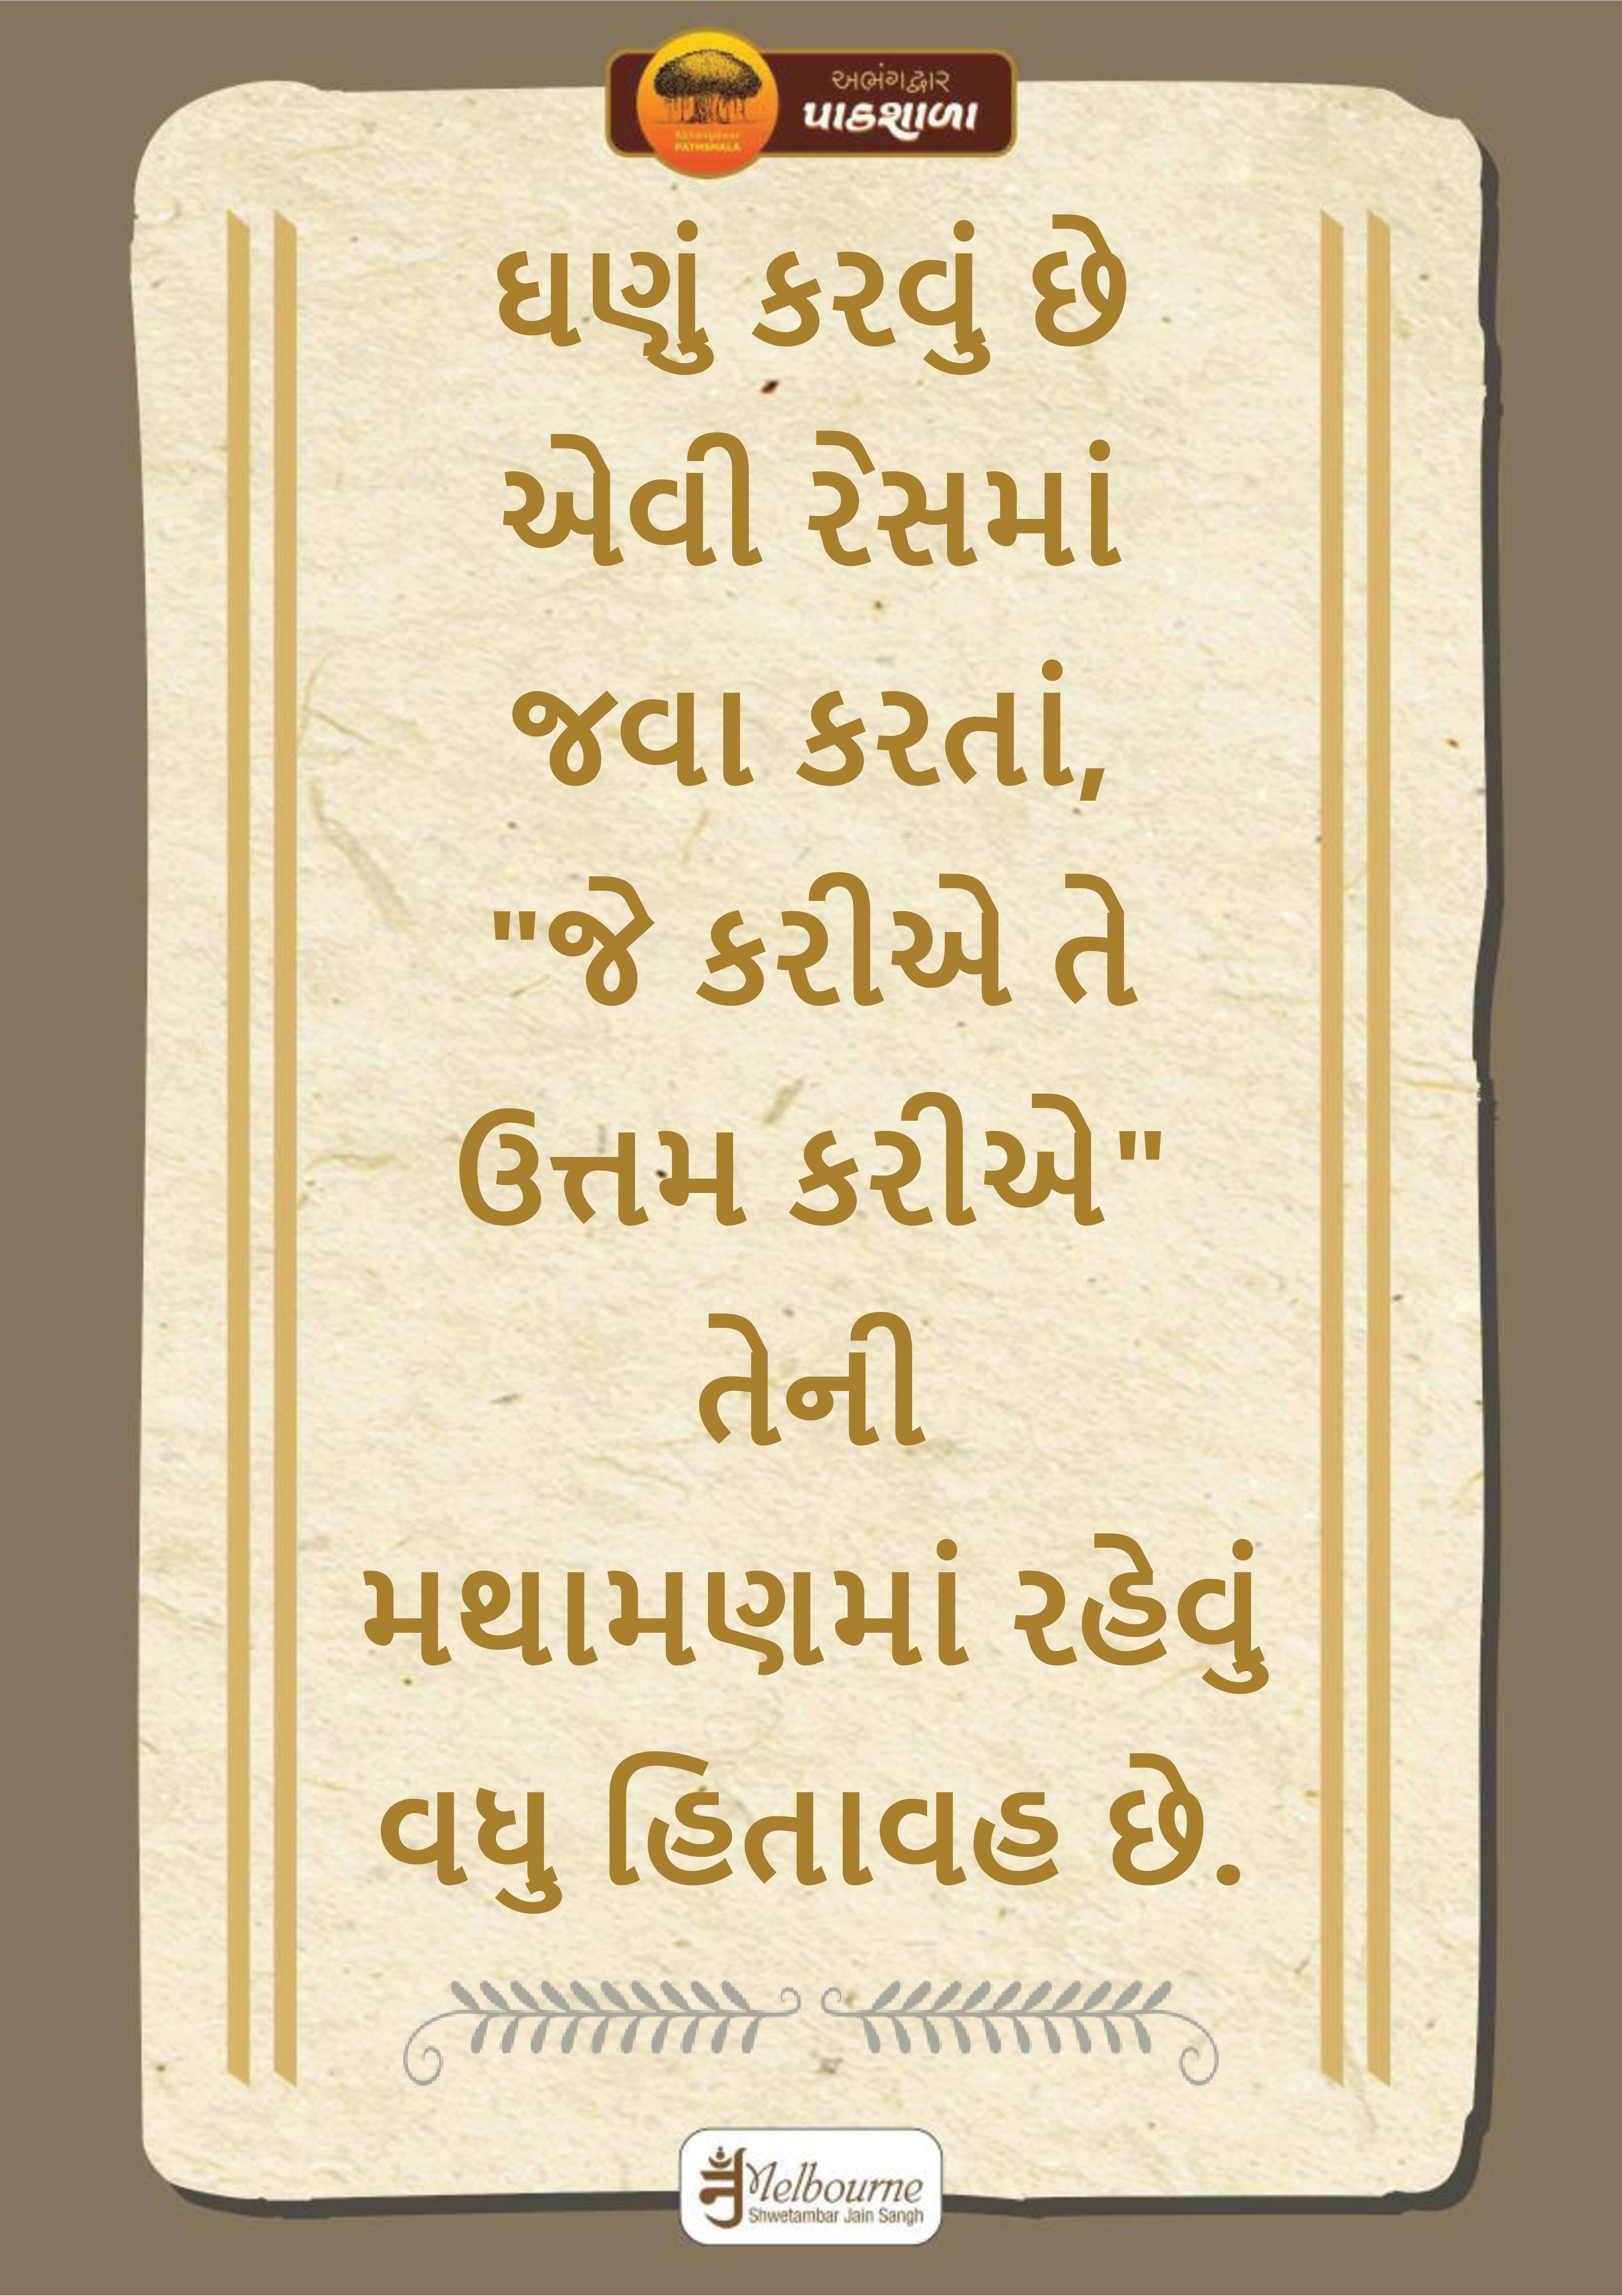 અભંગદ્વાર
પાઠશાળા
PATHSHALA
ઘણું કરવું છે
એવી રેસમાં
જવા કરતાં,
"જે કરીએ તે
ઉત્તમ કરીએ"
તેની
મથામણમાં રહેવું
વધુ હિતાવહ છે.
Melbourne
Shwetambar Jain Sangh